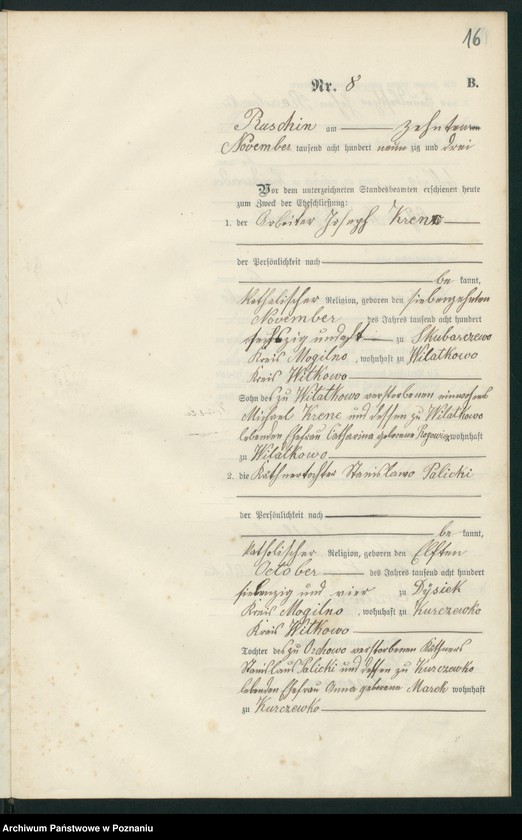 16
Nr. 8 B.
Ruschin am zehnten
November tausend acht hundert neunzig und drei
Vor dem unterzeichneten Standesbeamten erschienen heute
zum Zweck der Eheschließung:
1. der Arbeiter Joseph Krenz
der Persönlichkeit nach
be kannt,
katholischer Religion, geboren den siebenzehnten
November des Jahres tausend acht hundert
sechszig und acht zu Skubarczewo
Kreis Mogilno, wohnhaft zu Wilatkowo
Kreis Witkowo
Sohn des zu Wilatkowo verstorbenen Einwohners
Michael Krenc und dessen zu Wilatkowo
lebenden Ehefrau Catharina geborene wohnhaft
zu Wilatkowo
2. die Käthnertochter Stanislawa Palicki
der Persönlichkeit nach
be kannt,
katholischer Religion, geboren den Elften
October des Jahres tausend acht hundert
siebenzig und vier zu Dysiek
Kreis Mogilno, wohnhaft zu Kurczewko
Kreis Witkowo
Tochter des zu Orchowo verstorbenen Käthners
Stanislaus Palicki und dessen zu Kurczewko
lebenden Ehefrau Anna geborene March wohnhaft
zu Kurczewko
Archiwum Państwowe w Poznaniu